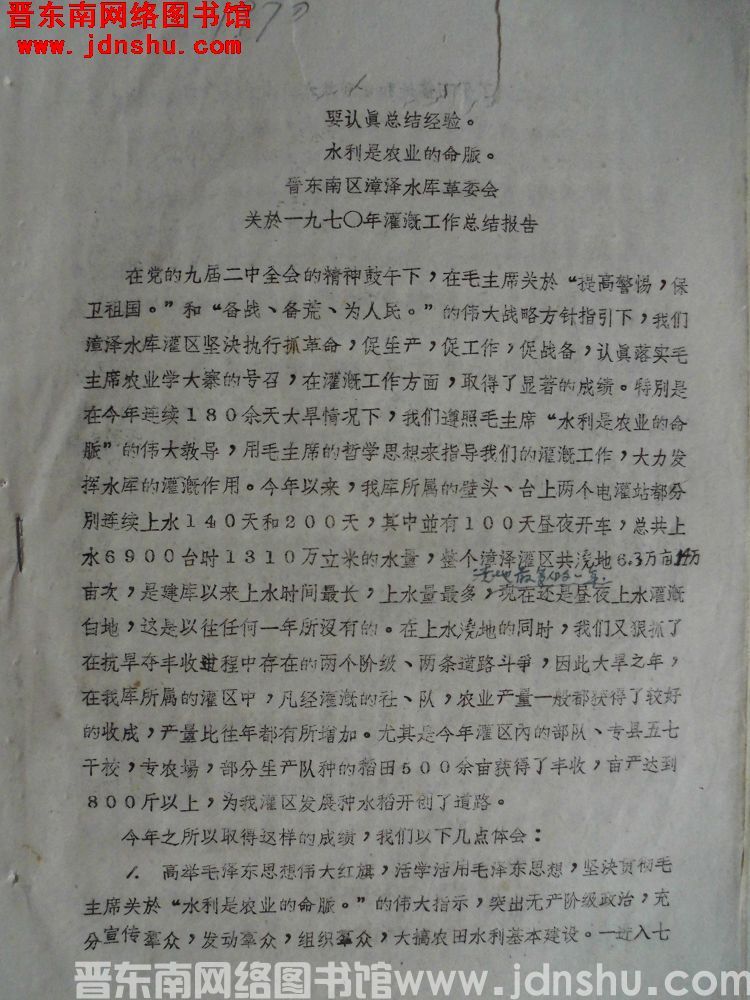 晋东南网络图书馆
www.jdnshu.com
要认真总结经验。
水利是农业的命脈。
晋东南区漳泽水库革委会
关於一九七〇年灌溉工作总结报告
在党的九届二中全会的精神鼓午下，在毛主席关於“提高警惕，保
卫祖国。”和“备战、备荒、为人民。”的伟大战略方针指引下，我们
漳泽水库灌区坚决执行抓革命，促生产，促工作，促战备，认真落实毛
主席农业学大寨的号召，在灌溉工作方面，取得了显著的成绩。特别是
在今年连续180余天大旱情况下，我们遵照毛主席“水利是农业的命
脈”的伟大教导，用毛主席的哲学思想来指导我们的灌溉工作，大力发
挥水库的灌溉作用。今年以来，我库所属的壁头、台上两个电灌站都分
别连续上水140天和200天，其中並有100天昼夜开车，总共上
水6900台时1310万立米的水量，整个漳泽灌区共浇地6.3万亩
亩次，是建库以来上水时间最长，上水量最多，现在还是昼夜上水灌溉
白地，这是以往任何一年所没有的。在上水浇地的同时，我们又狠抓了
在抗旱夺丰收过程中存在的两个阶级、两条道路斗争，因此大旱之年，
在我库所属的灌区中，凡经灌溉的社、队，农业产量一般都获得了较好
的收成，产量比往年都有所增加。尤其是今年灌区内的部队、专县五七
干校，专农場，部分生产队种的稻田500余亩获得了丰收，亩产达到
800斤以上，为我灌区发展种水稻开创了道路。
今年之所以取得这样的成绩，我们以下几点体会：
1. 高举毛泽东思想伟大红旗，活学活用毛泽东思想，坚决贯彻毛
主席关於“水利是农业的命脈。”的伟大指示，突出无产阶级政治，充
分宣传羣众，发动羣众，组织羣众，大搞农田水利基本建设。一进入七
晋东南网络图书馆www.jdnshu.com